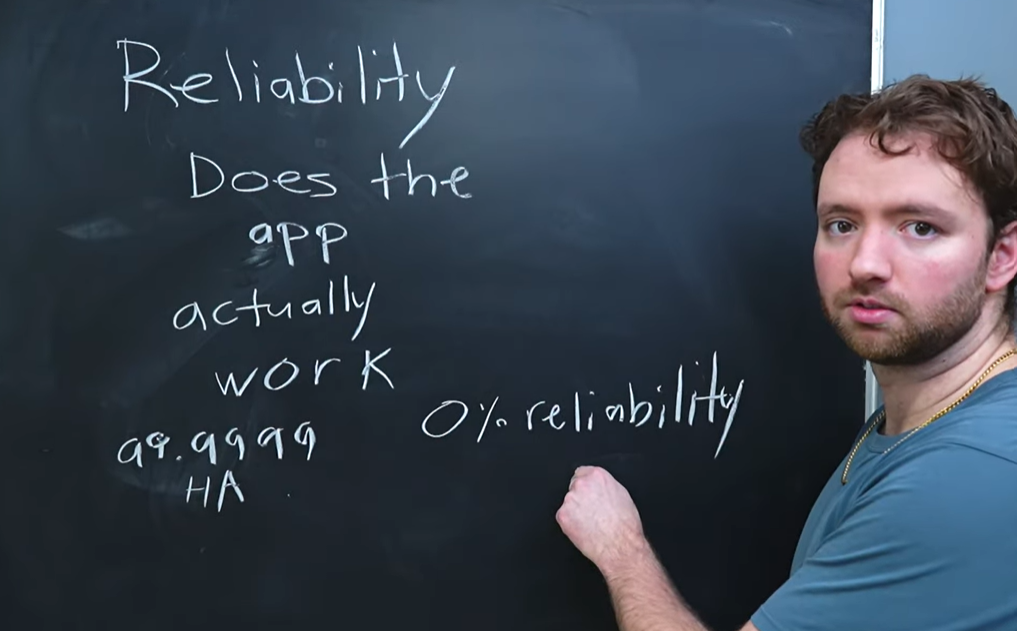 Reliability
Does the
app
actually
work
99.9999
HA
0% reliability